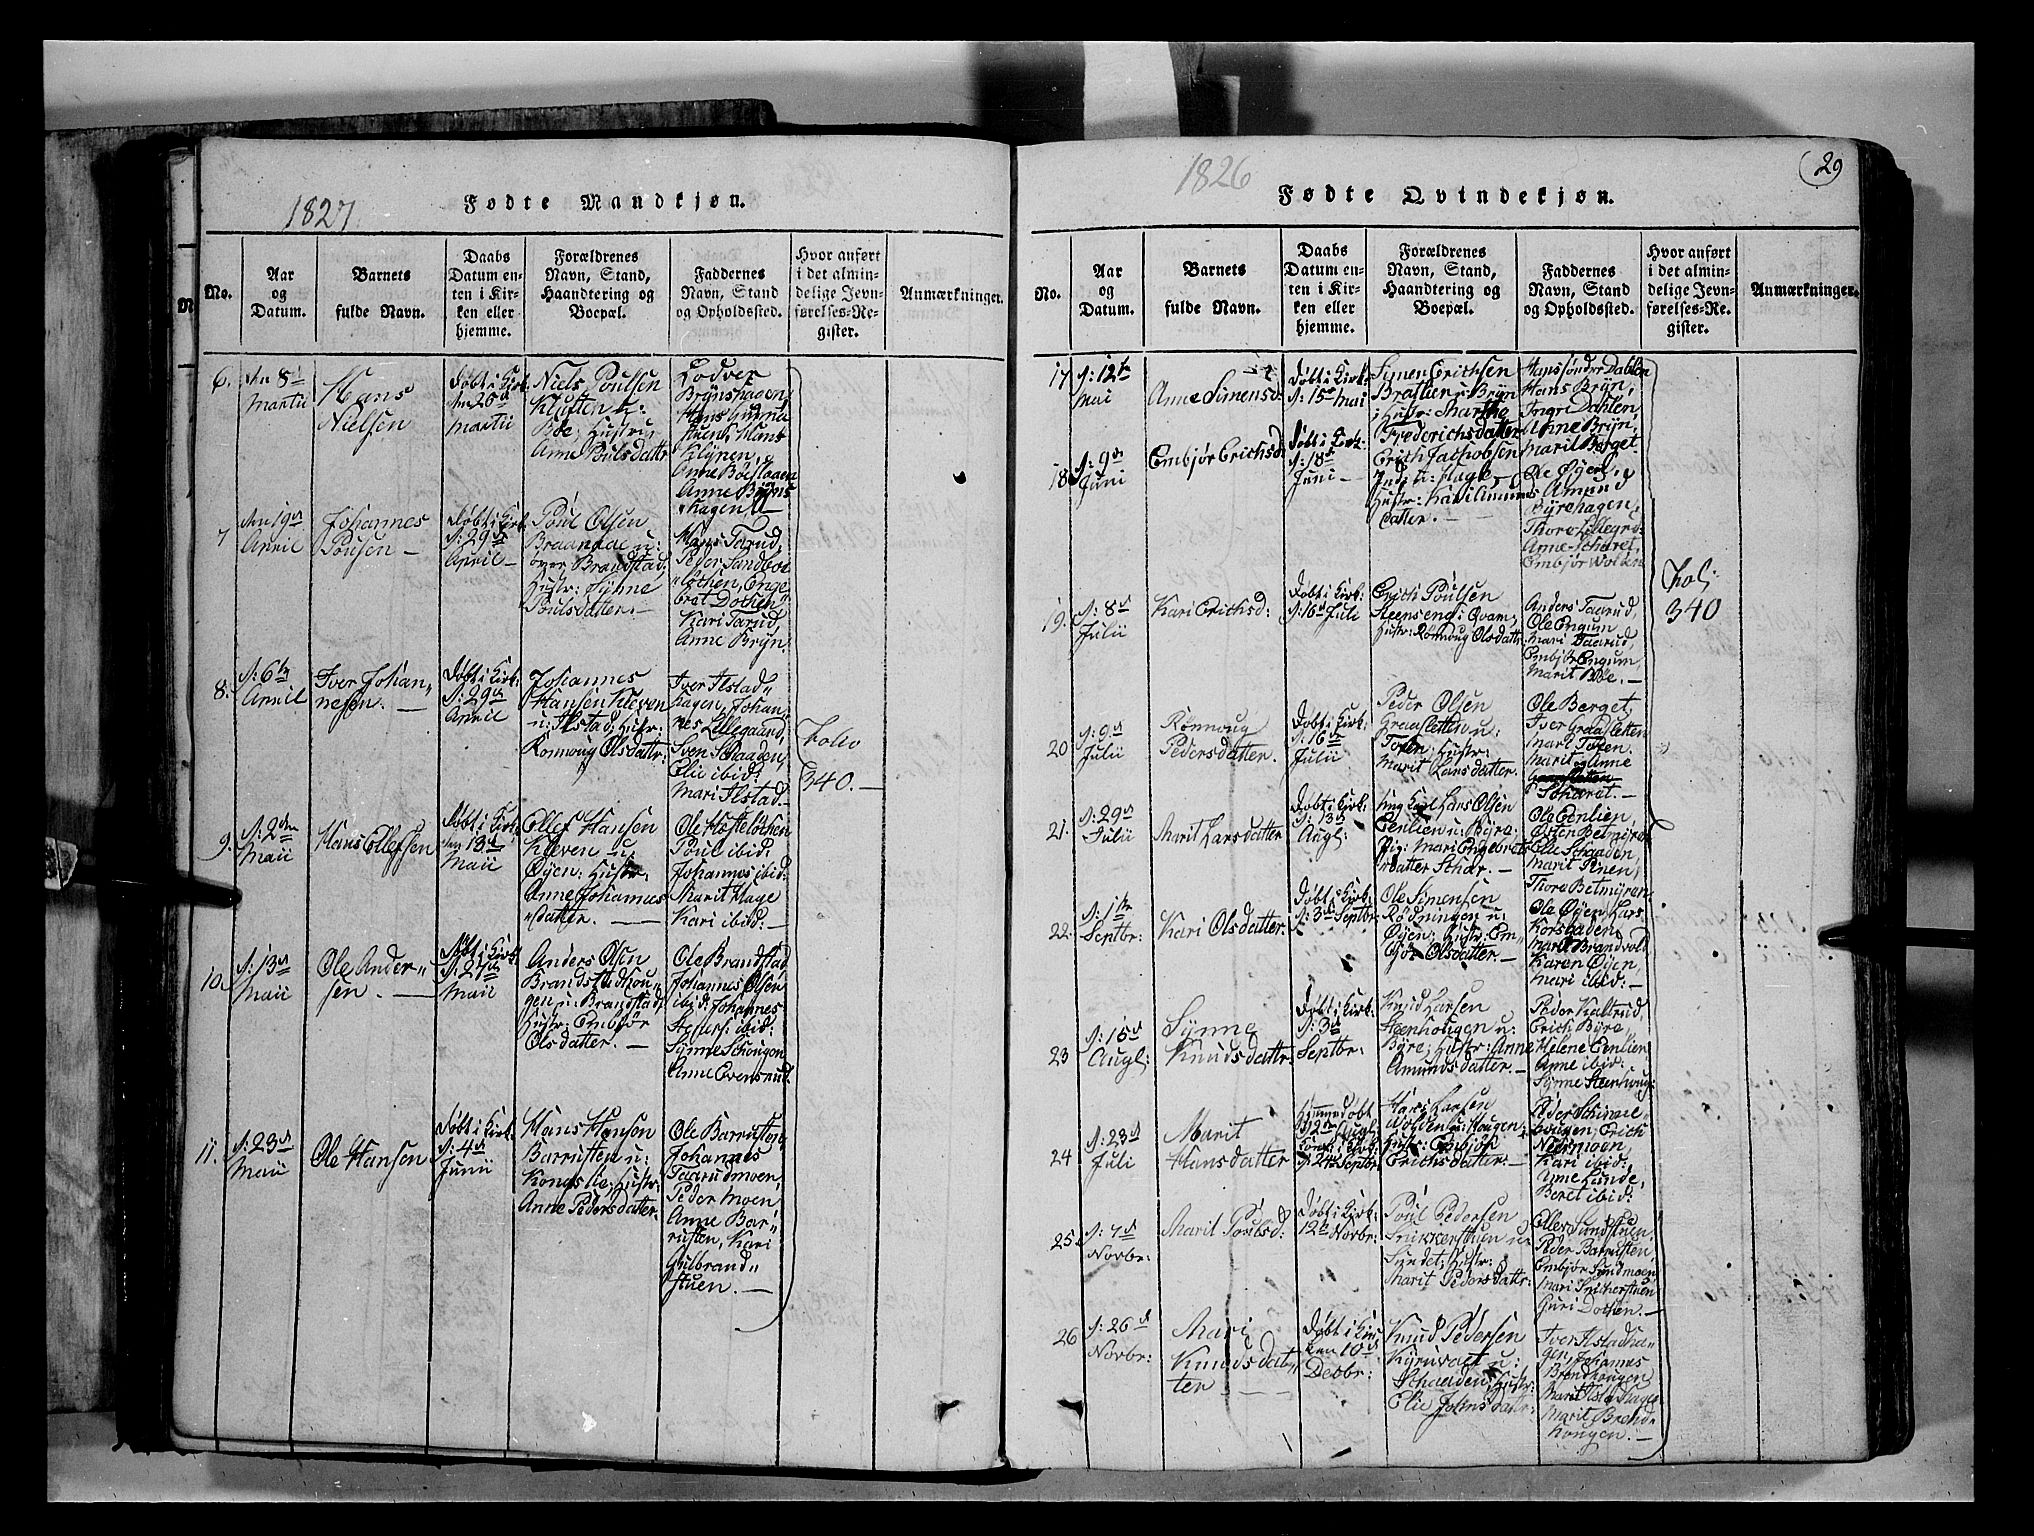 1827
Fødte Mandkjøn.
No.
Aar
og
Datum.
Barnets
fulde Navn.
Daabs
Datum en-
ten i Kir-
ken eller
hjemme.
Forældrenes
Navn, Stand,
Haandtering og
Boepæl.
Faddernes
Navn, Stand
og Opholdssted.
Hvor anført
i det almin-
delige Jevn-
førelses-Re-
gister.
Anmærkninger.
6.
den 8de
Martii
Hans
Nielsen
Døbt i Kirk:
Martii
Niels Poulsen
Kluften u:
Bøe, Hustru
Anne Poulsdattr
Klynen,
Anne Bryns
hagen
7
den 19de
April
Johannes
Pousen —
Døbt i Kirk:
d: 29de
April —
Poul Olsen
Braandae u:
over Brandstad,
Hustr: Synne
Poulsdatter. —
Hans Tarud,
Peder Sandboe
løkken, Enge
bret Dokken
Kari Tarud,
Anne Bryn.
8.
d: 6te
April
Iver Johan
nesen. —
Døbt i Kirk:
d: 29de
April
Johannes
Hansen Kleven
u: Ilstad, Hustr:
Ronnoug Olsdattr:
Iver Ilstad
hagen, Johan
nes Lillegaard,
Sven Schaaden,
Elie ibid:
Mari Ilstad. —
Folio
340. —
9.
d: 2den
Maii
Hans Ellefsen
Døbt i Kirk:
den 13de
Maii
Ellef Hansen
Kleven u:
Øyen: Hustr:
Anne Johannes
datter. —
Poul ibid:
Johannes ibid:
Marit Hage
Kari ibid: —
10.
d: 13de
Maii
Ole Ander
sen. —
Døbt i Kirk:
d: 27de
Maii
Anders Olsen
Brandstadhou
gen u: Brandstad
Hustr: Embjør
Olsdatter. —
Ole Brandstad
Johannes Olsen
ibid: Johannes
ibid:
Synne Schougen
Anne Evensrud.
11.
d: 23de
Maii
Ole Hansen
Døbt i Kirk:
d: 4de
Junii
Hans Hansen
Barrusten u:
Kongslie, Hustr:
Anne Pedersdatter.
Ole Barrusten
Johannes
Taarudmoen,
Peder Moen
Anne Bar
rusten, Kari
Gulbrand
stuen. —
1826
29
Fødte Qvindekjøn.
No.
Aar
og
Datum.
Barnets
fulde Navn.
Daabs
Datum en-
ten i Kir-
ken eller
hjemme.
Forældrenes
Navn, Stand,
Haandtering og
Boepæl.
Faddernes
Navn, Stand
og Opholdssted.
Hvor anført
i det almin-
delige Jevn-
førelses-Re-
gister.
Anmærkninger.
17
d: 12te
Mai
Anne Simensd:
Døbt i Kirk:
d: 15de Mai
Simen Erichsen
Bratlien u: Bryn
Hustr: Marthe
Frederichsdatter
Hans Søndre Dahlen
Hans Bryn,
Ingri Dahlen
Anne Bryn,
Marit Berget.
18
d: 9de
Juni
Embjør Erichsd:
Døbt i Kirk:
d: 18de
Juni —
Erich Jacobsen
Hustr: Kari Amunds
datter. —
Ole Øyen,
Amund
Byrehagen,
Anne Schøret,
Embjør Wolden
19.
d: 8de
Julii
Kari Erichsd:
Døbt i Kirk:
d: 16de Juli
Erich Poulsen
Steensend: Qvam,
Hustr: Rønnoug Olsdattr:
Anders Taarud,
Ole Engum
Mari Taarud,
Embjør Engum
Marit Bøe. —
Foli:
340
20
d: 9de
Julii
Rønnoug
Pedersdatter.
Døbt i Kirk:
d: 16de
Julii
Peder Olsen
Graasletten u:
Toften, Hustr:
Marit Larsdatter.
Ole Berget,
Iver Graasletten
Mari Toften.
Marit og Anne
Schøret. —
21.
d: 29de
Julii
Marit Larsdatter.
Døbt i Kirk:
d: 13de
Augl:
Ung Karl Lars Olsen
Eenlien u: Byre.
Pig: Mari Engebrets
datter Schør. —
Ole Eenlien,
Østen Betmyren
Elie Schaaden,
Thora Betmyren
22.
d: 1ste
Septbr:
Kari Olsdatter.
Døbt i Kirk:
d: 3de Septbr
Ole Simensen
Rødningen u:
Øyen: Hustr: Em
bjør Olsdatter. —
Ole Øyen, Lars
Korsbaden
Marit Brandvold
Karen Øyen,
Mari ibid: —
23
d: 15de
Augl:
Synne
Knudsdattr:
Døbt i Kirk:
d: 3de
Septbr:
Knud Larsen
Steenhougen u:
Byre, Hustr: Anne
Amundsdatter. —
Peder Kaltrud,
Erich Byre,
Helene Eenlien
Anne ibid:
Synne Steenhoug:
24
d: 23de
Juli
Marit
Hansdatter
Hjemmedøbt
d: 24de Septbr
Hans Larsen
Wolden u: Hougen:
Hustr: Embjør
Erichsdatter. —
hougen, Erich
Kari ibid:,
Beret ibid:
25.
d: 7de
Novbr:
Marit Poulsd:
Døbt i Kirk:
12te Novbr:
Poul Pedersen
Snikkerstuen u:
Sundet, Hustr:
Marit Pedersdattr:
Ellev Sundstuen:
Peder Barrusten
Embjør Sundmoen
Mari Snikerstuen
Guri Dokken. —
26
d: 26de
Novbr:
Mari
Knudsdat
ter —
Døbt i Kir
den 10de
Decbr:
Knud Pedersen
Schaaden, Hustr:
Elie Johnsdattr:
Iver Ilstadha
gen, Johannes
Brendhougen
Marit Ilstadhagen
Marit Brend
hougen. —